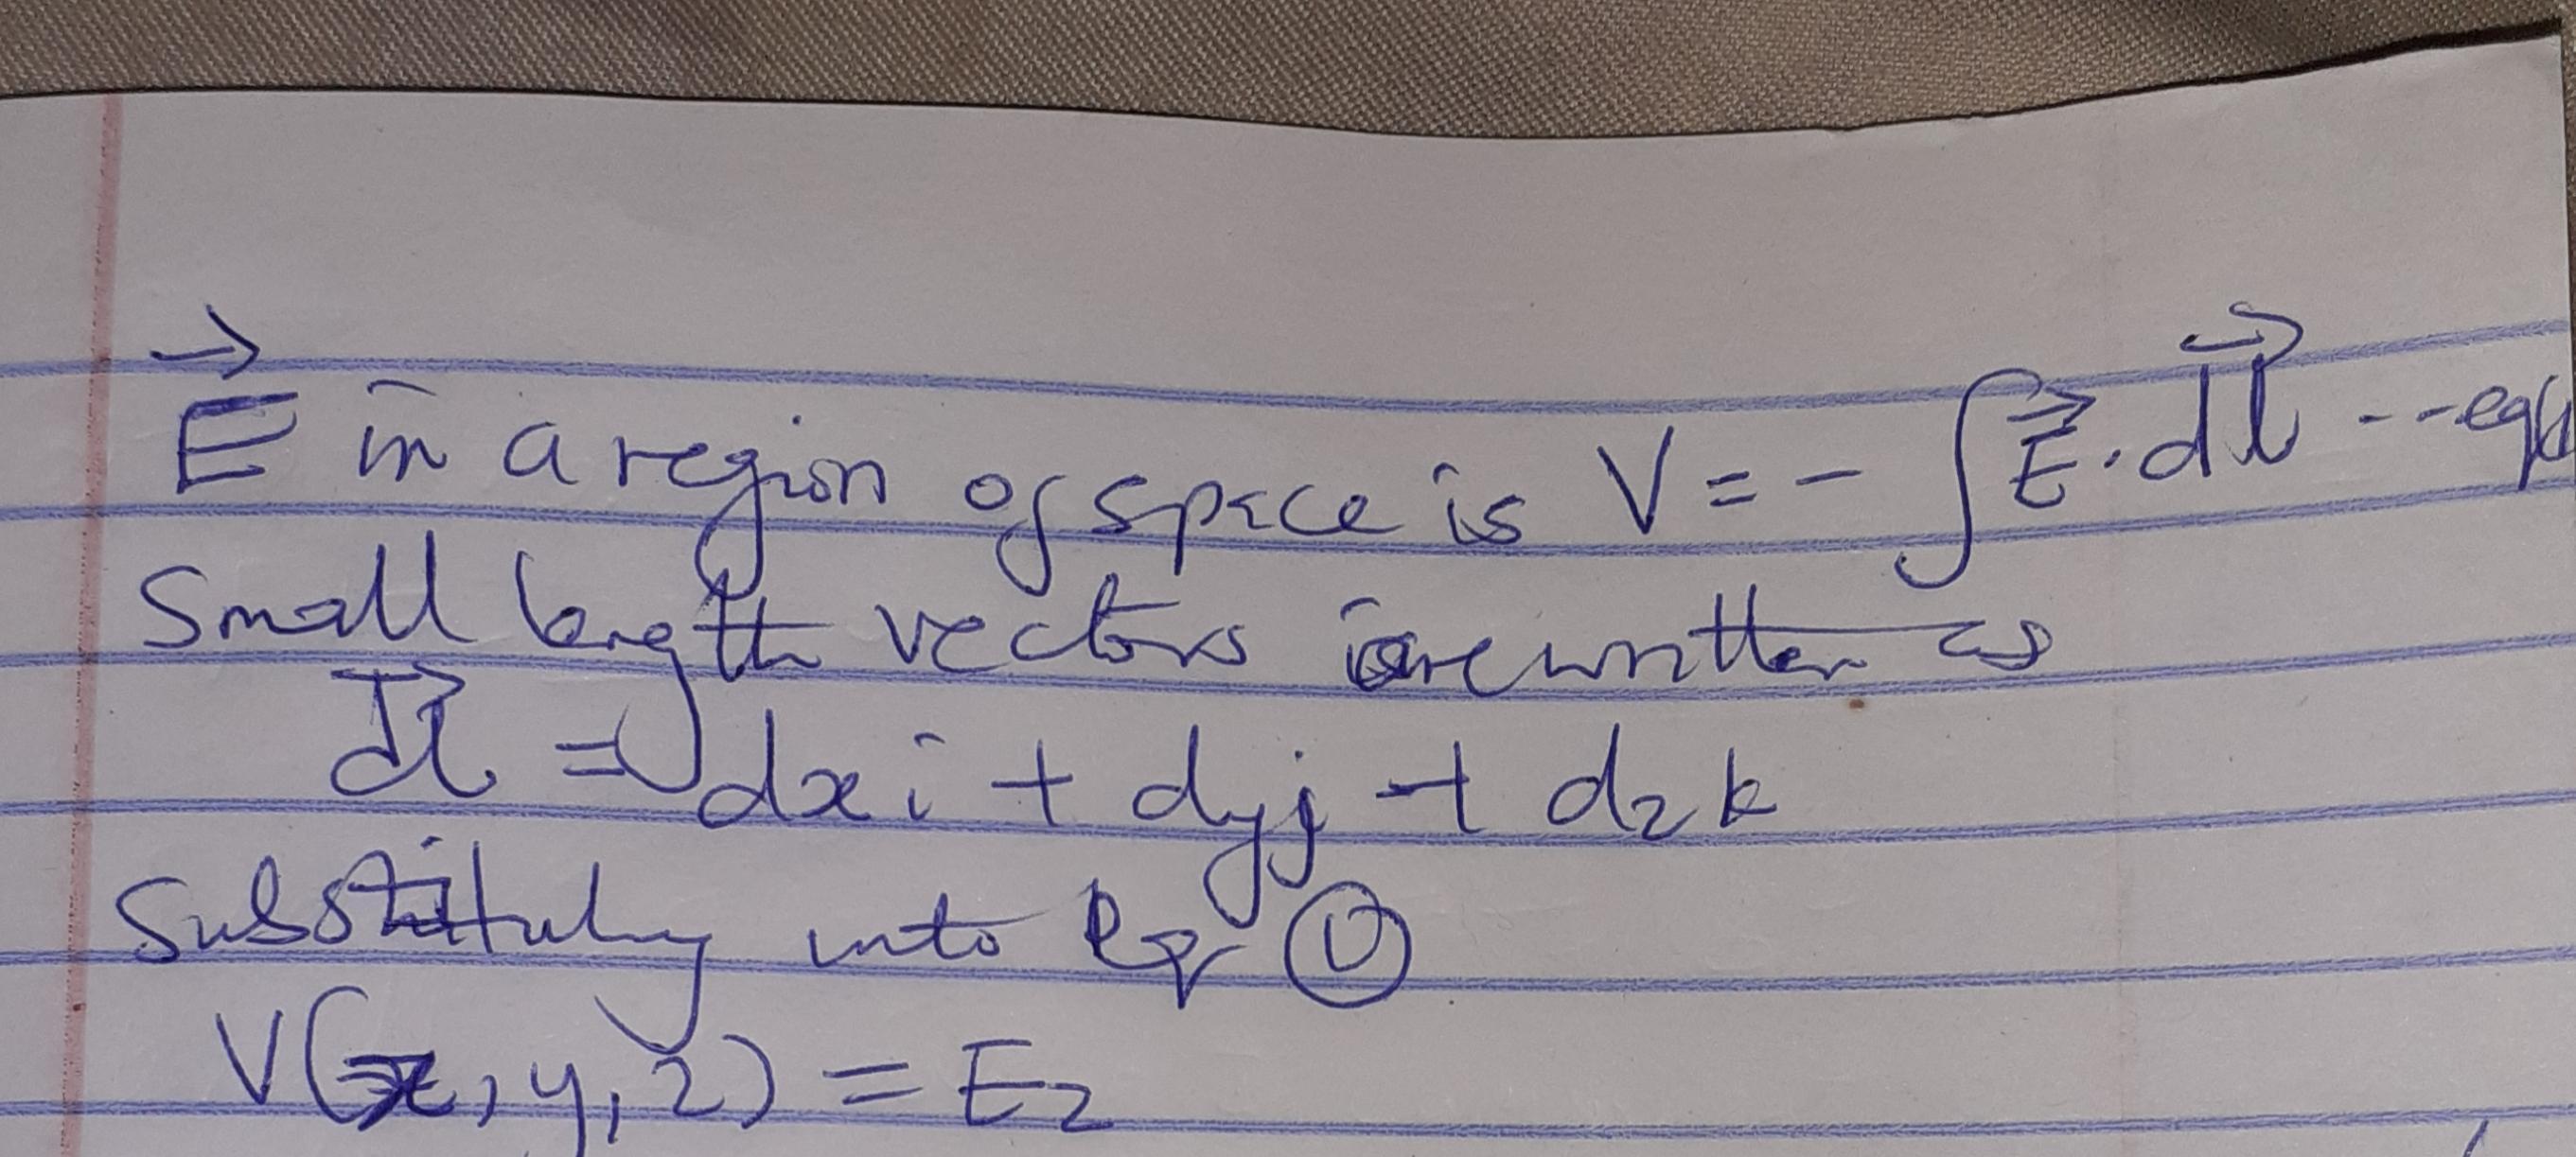 E⃗ in a region of space is V = - ∫ E⃗ . dl⃗ --- eq(
Small length vectors are written as
dl⃗ = dx i + dy j + dz k
Substituting into Eq ①
V(x, y, z) = Ez